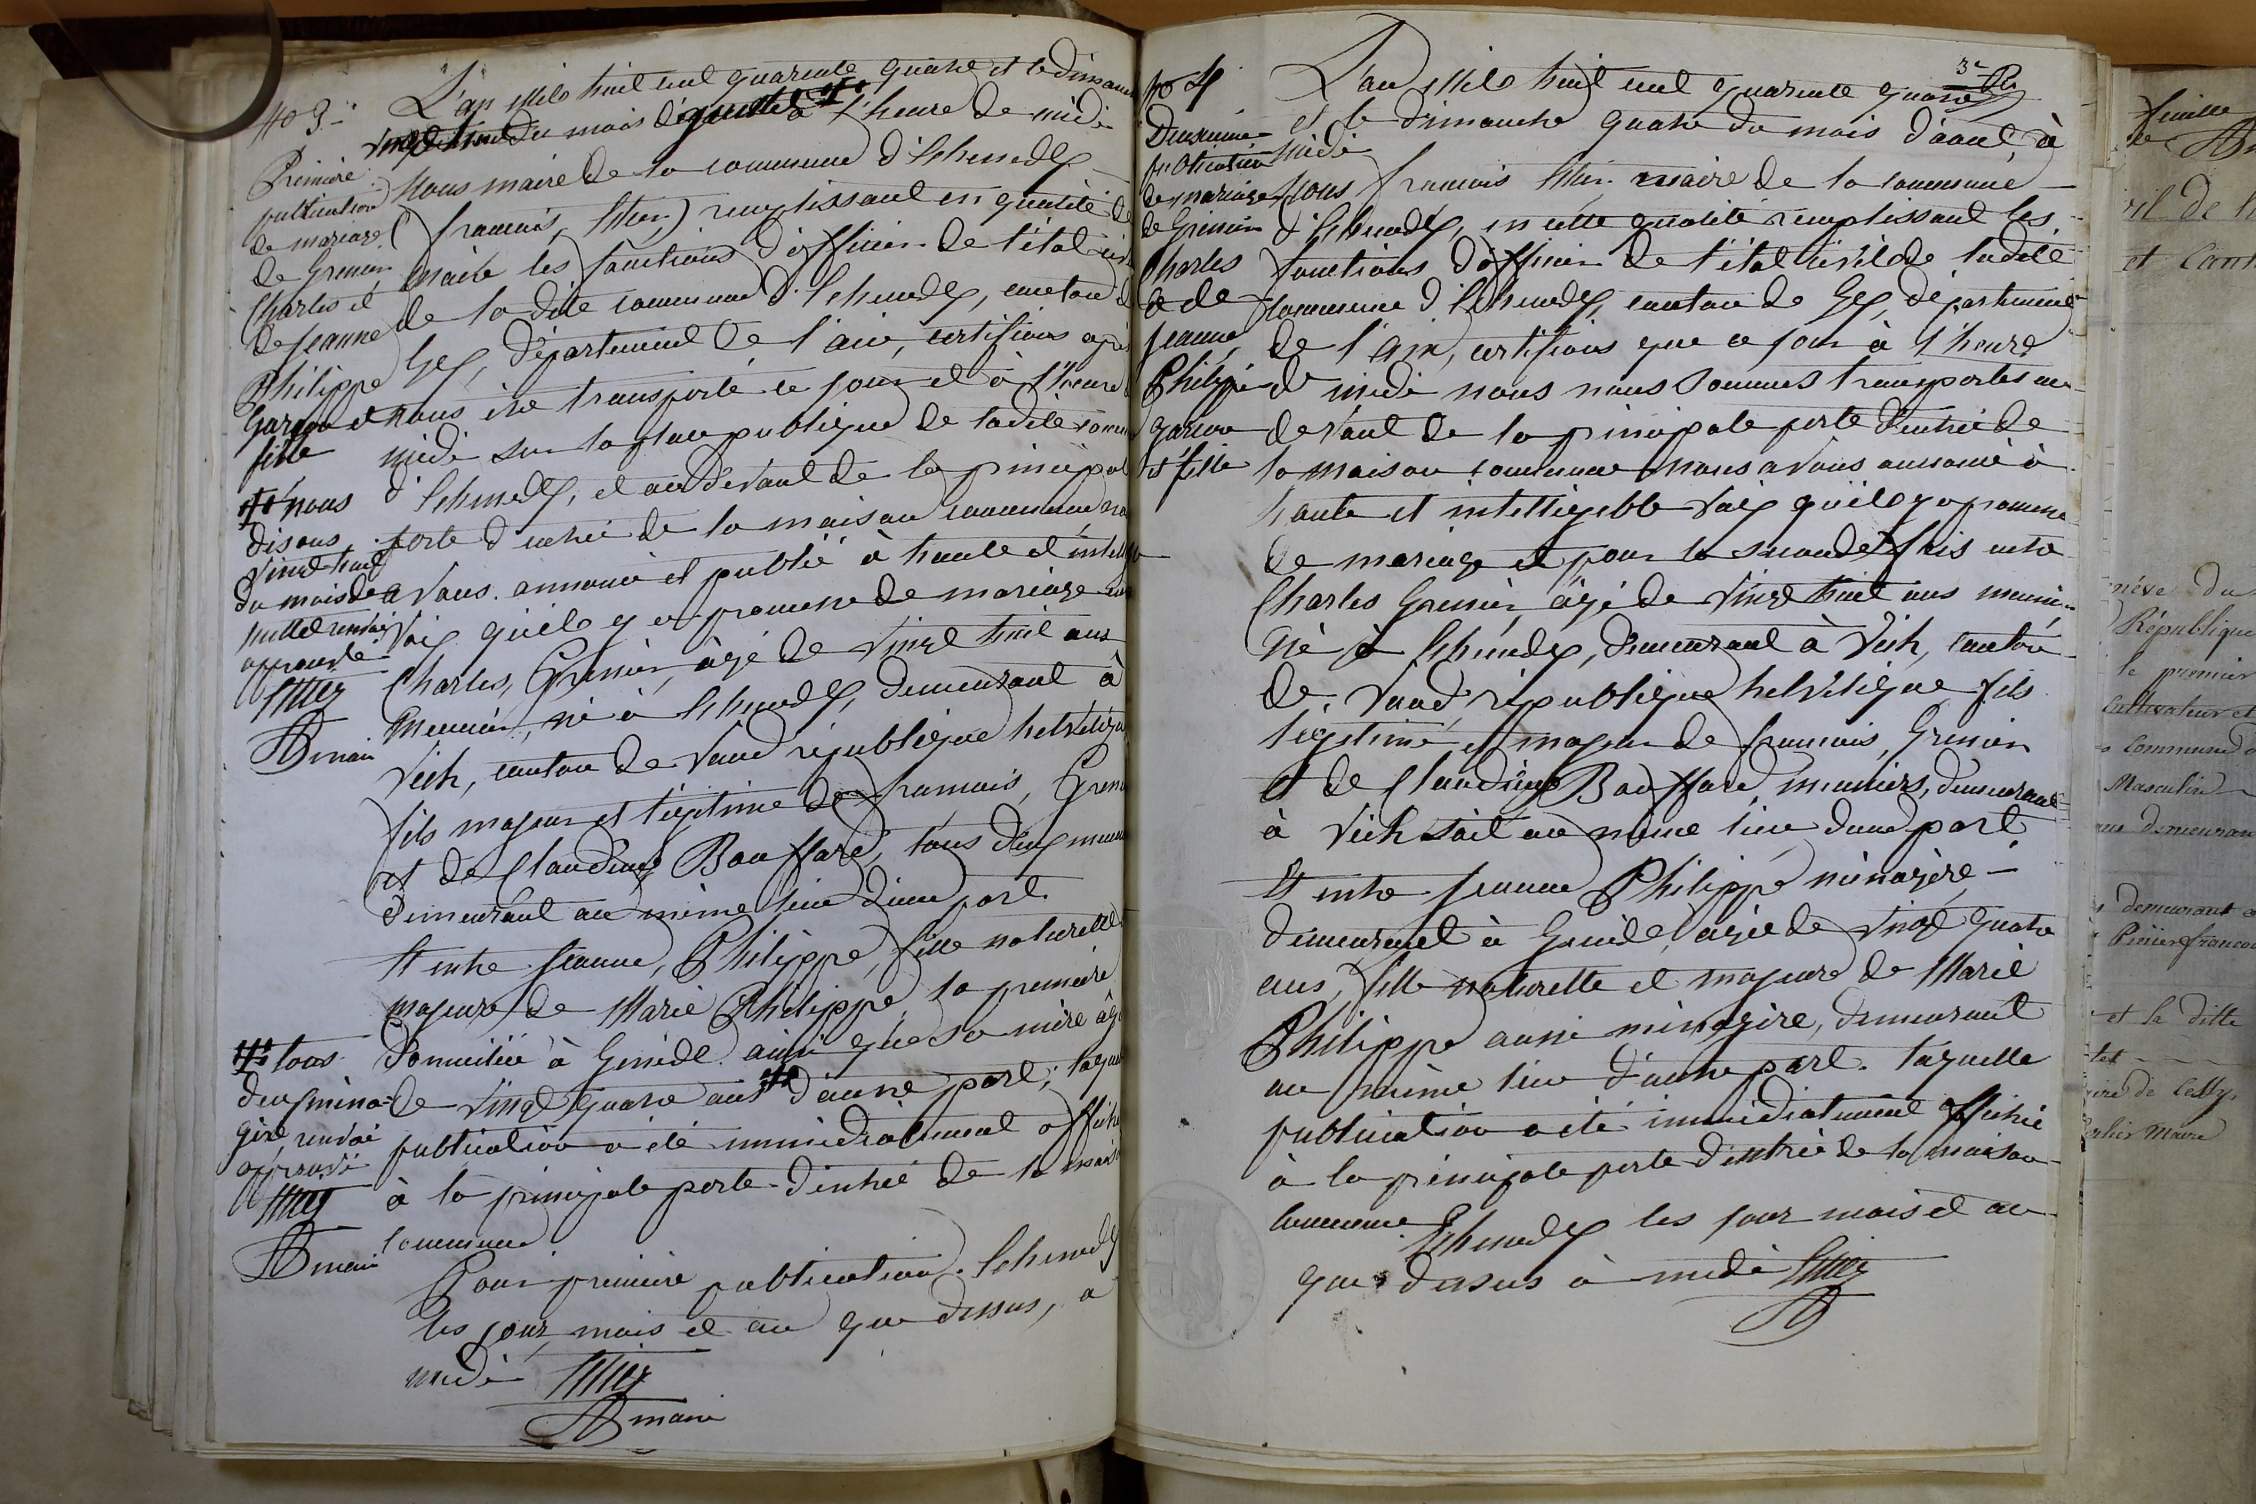 No 3.
Première
publication
de mariage
de Grenier
Charles et
de Jeanne
Philippe
garçon et
fille
nous
disons
vingt huit
du mois de
juillet renvoi
approuvé
maire
L'an mil huit cent quarante quatre et le dimanche
du mois de à l'heure de midi
Nous maire de la commune d'Echenevex
(françois, ) remplissant en qualité de
maire les fonctions d'officier de l'état civil
de la dite commune d'Echenevex, canton de
Gex, département de l'ain, certifions après
nous être transporté ce jour et à l'heure de
midi sur la place publique de ladite commune
d'Echenevex, et au devant de la principale
porte d'entrée de la maison commune nous
avons annoncé et publié à haute et intelligible
voix qu'il y a promesse de mariage entre
Charles, Grenier, âgé de vingt huit ans
meunier, né à Echenevex, demeurant à
Vich, canton de Vaud république helvétique
fils majeur et légitime de françois, Grenier
et de Claudine Bouffard, tous deux meuniers
demeurant au même lieu d'une part.
Et entre Jeanne, Philippe, fille naturelle
majeure de Marie Philippe, la première
domiciliée à Genève ainsi que sa mère âgée
de vingt quatre ans d'autre part; laquelle
publication a été immédiatement affichée
à la principale porte d'entrée de la maison
commune
tous
deux ména=
gère, renvoi
approuvé
maire
Pour première publication. Echenevex
les jour, mois et an que dessus, à
midi
maire
No 4
Deuxième
publication
de mariage
de Grenier
Charles
& de
Jeanne
Philippe
garçon
et fille
3e
L'an Mil huit cent quarante quatre
et le dimanche quatre du mois d'août, à
midi
Nous françois maire de la commune
d'Echenevex, en cette qualité remplissant les
fonctions d'officier de l'état civil de ladite
commune d'Echenevex, canton de Gex, département
de l'ain, certifions que ce jour à l'heure
de midi nous nous sommes transportés au
devant de la principale porte d'entrée de
la maison commune nous avons annoncé à
haute et intelligible voix qu'il y a promesse
de mariage et pour la seconde fois entre
Charles Grenier, âgé de vingt huit ans meunier
né à Echenevex, demeurant à Vich, canton
de Vaud république helvétique fils
légitime et majeur de françois, Grenier
et de Claudine Bouffard, meuniers, demeurant
à Vich soit au même lieu d'une part
Et entre Jeanne Philippe ménagère
demeurant à Genève, âgée de vingt quatre
ans, fille naturelle et majeure de Marie
Philippe aussi ménagère, demeurant
au même lieu d'autre part. laquelle
publication a été immédiatement affichée
à la principale porte d'entrée de la maison
commune. Echenevex les jour mois et an
que dessus à midi
feuille
et
Genève du
République
le premier
Cultivateur et
commune
Masculin
demeurant
demeurant
françois
et la ditte
maire de Cessy.
Maire